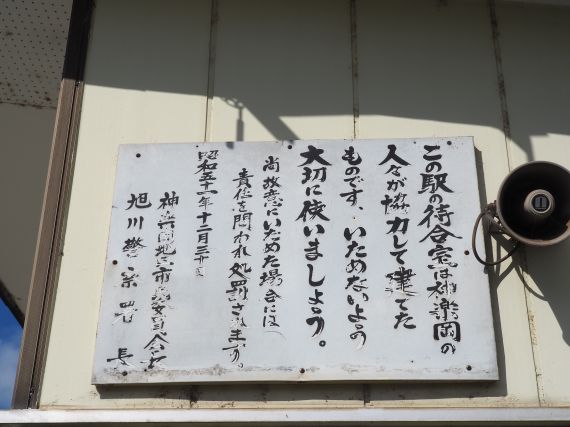 この駅の待合室は神楽岡の
人々が協力して建てた
ものです、いためないよの
大切に使いましょう。
尚故意にいためた場合には
責任を問われ処罰されます。
昭和五十一年十二月二十日
神楽岡地区市民委員会
旭川警察署長